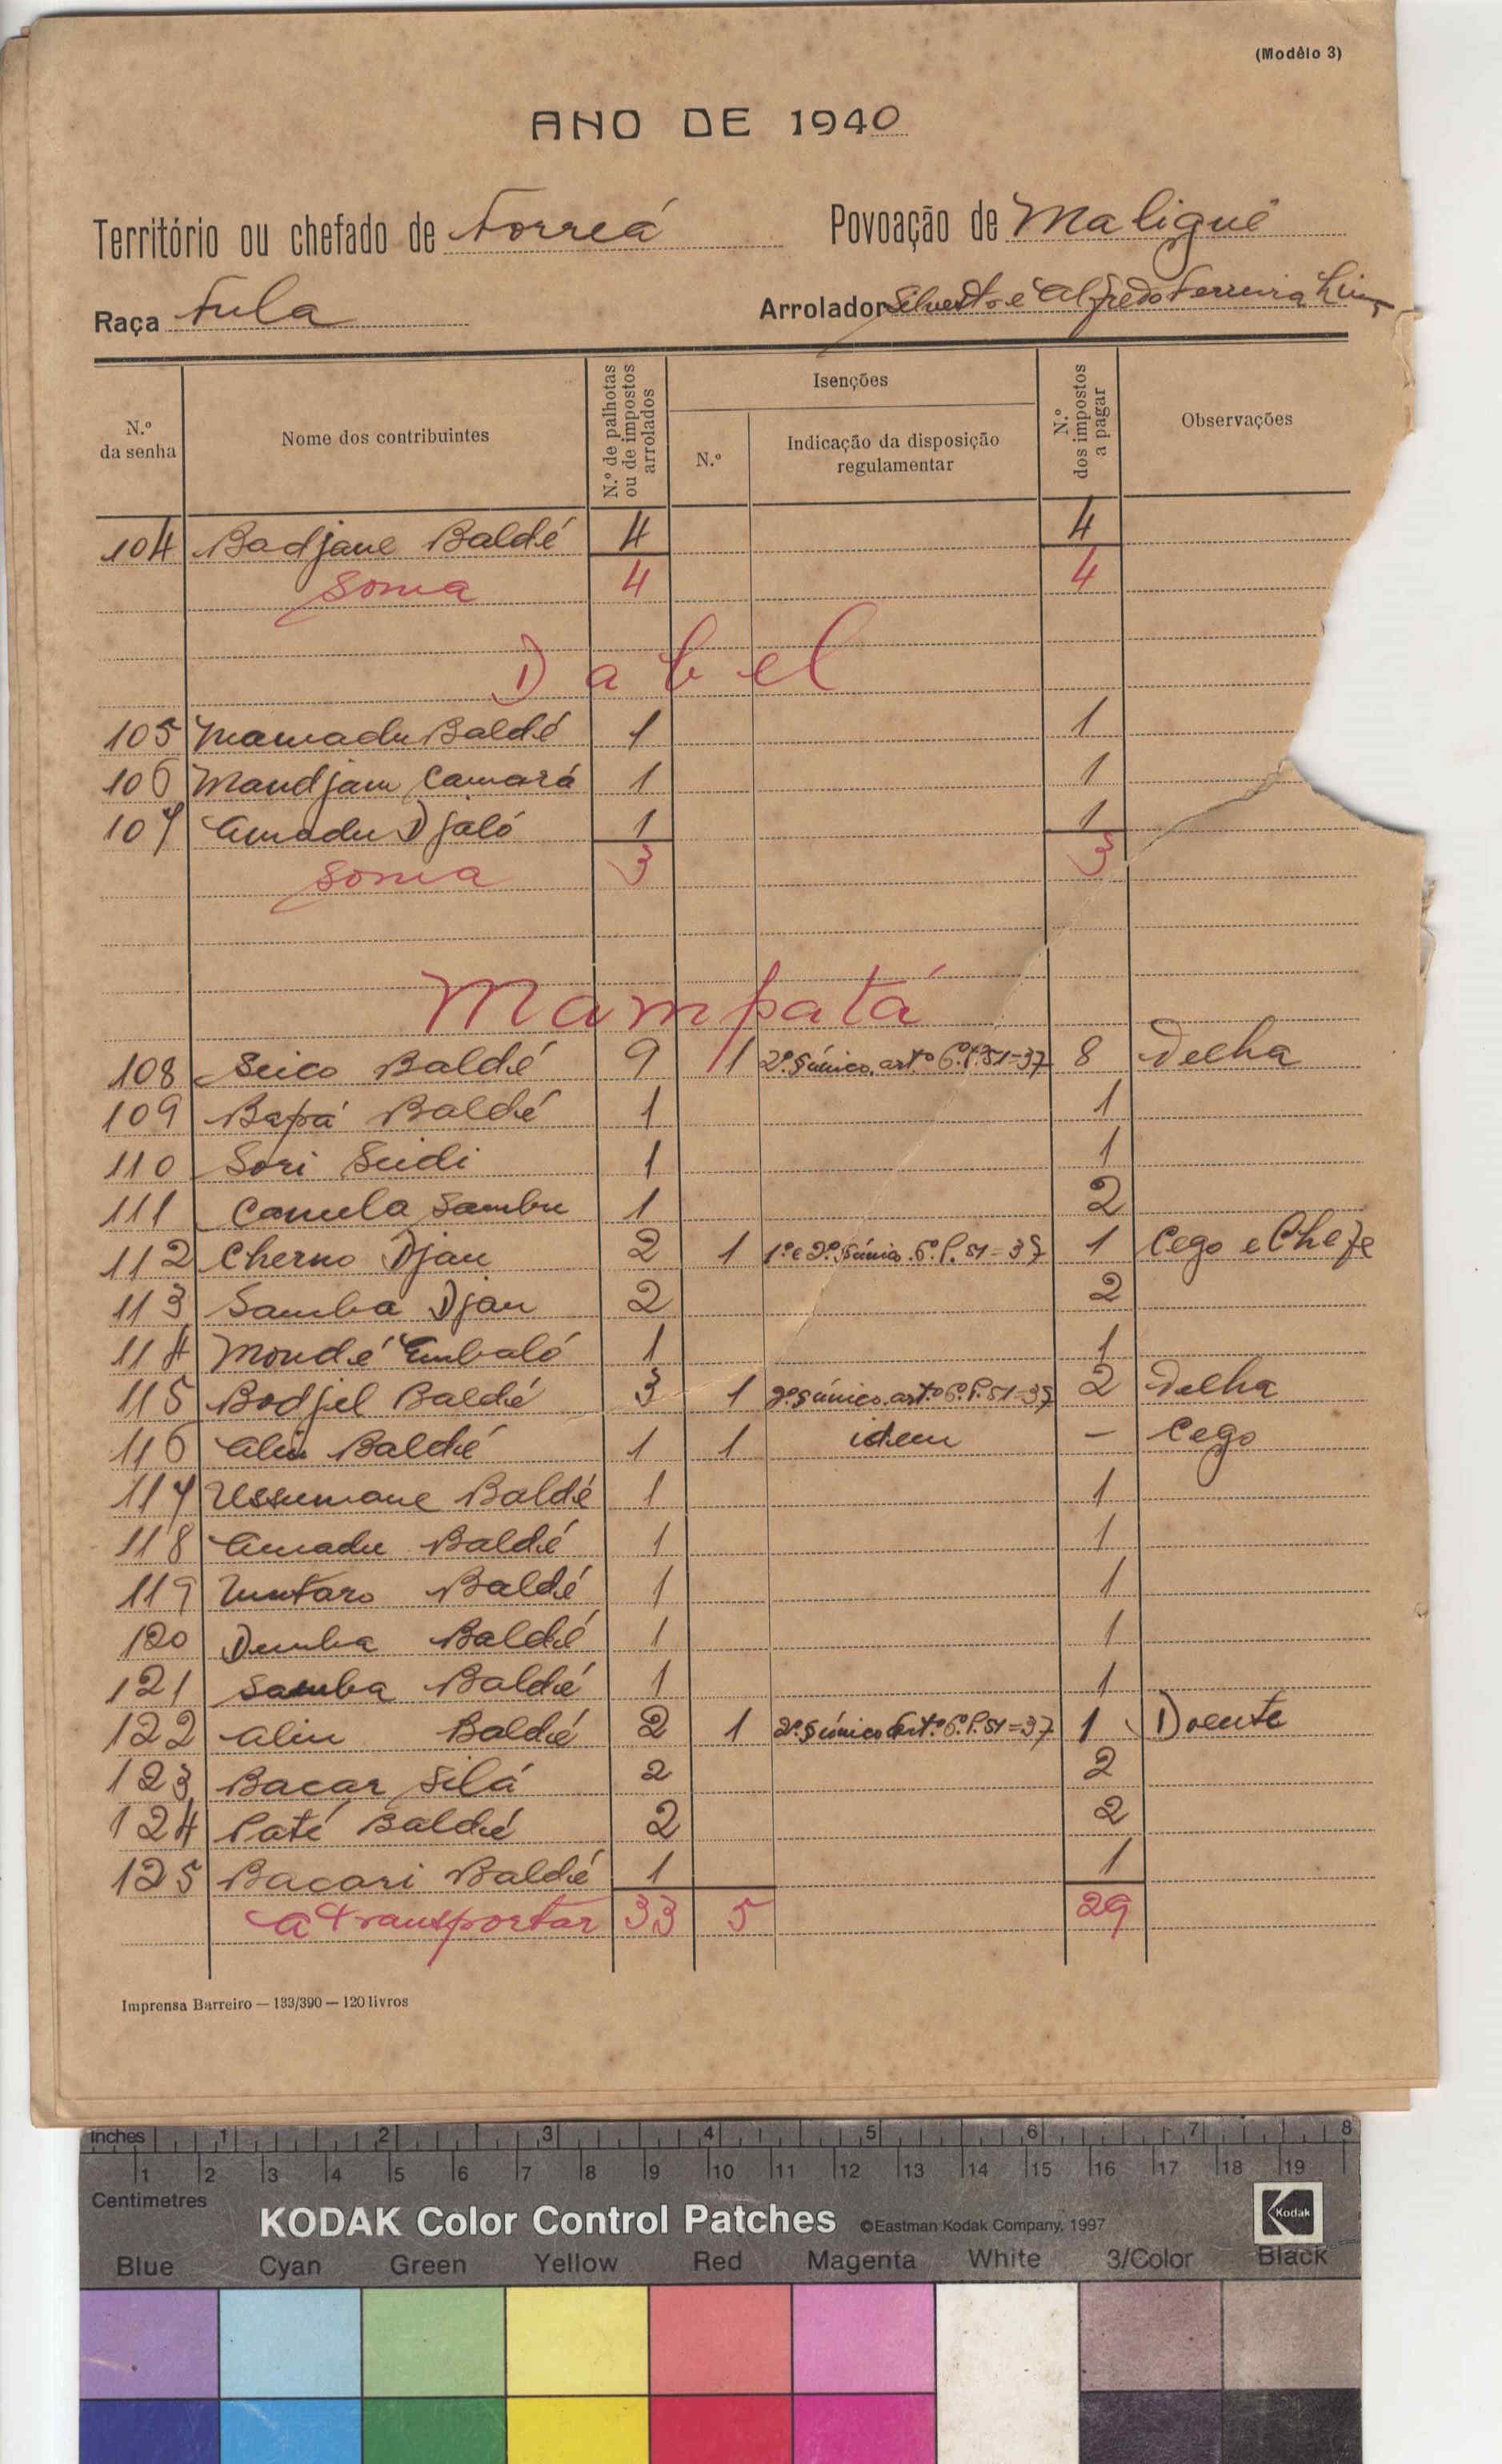 (Modêlo 3)
ANO DE 1940
Território ou chefado de Forreá Povoação de Maliguê
Raça Fula Arrolador Silvestre e Alfredo Ferreira
N.º da senha
Nome dos contribuintes
N.º de palhotas ou de impostos arrolados
Isenções
N.º
Indicação da disposição regulamentar
N.º dos impostos a pagar
Observações
104 Badjane Baldé 4 4
Soma 4 4
Dabel
105 Mamadu Baldé 1 1
106 Mandjam Camará 1 1
107 Amadu Djaló 1 1
Soma 3 3
Mampatá
108 Seico Baldé 9 1 2º. § único. artº 6º. P. 51=37 8 Velha
109 Bapá Baldé 1 1
110 Sori Seidi 1 1
111 Camula Sambu 1 2
112 Cherno Djau 2 1 1º. e 2º. § único. 6º. P. 51=37 1 Cego e Chefe
113 Samba Djau 2 2
114 Mondé Embaló 1 1
115 Bodjel Baldé 3 1 2º. § único. artº 6º. P. 51=37 2 Velha
116 Aliu Baldé 1 1 idem — Cego
117 Ussumane Baldé 1 1
118 Amadu Baldé 1 1
119 Umtaro Baldé 1 1
120 Demba Baldé 1 1
121 Samba Baldé 1 1
122 Aliu Baldé 2 1 2º. § único artº. 6º. P. 51=37 1 Doente
123 Bacar Silá 2 2
124 Paté Baldé 2 2
125 Bacari Baldé 1 1
A transportar 33 5 29
Imprensa Barreiro — 133/390 — 120 livros
inches 1 2 3 4 5 6 7 8
1 2 3 4 5 6 7 8 9 10 11 12 13 14 15 16 17 18 19
Centimetres
KODAK Color Control Patches ©Eastman Kodak Company, 1997 Kodak
Blue Cyan Green Yellow Red Magenta White 3/Color Black